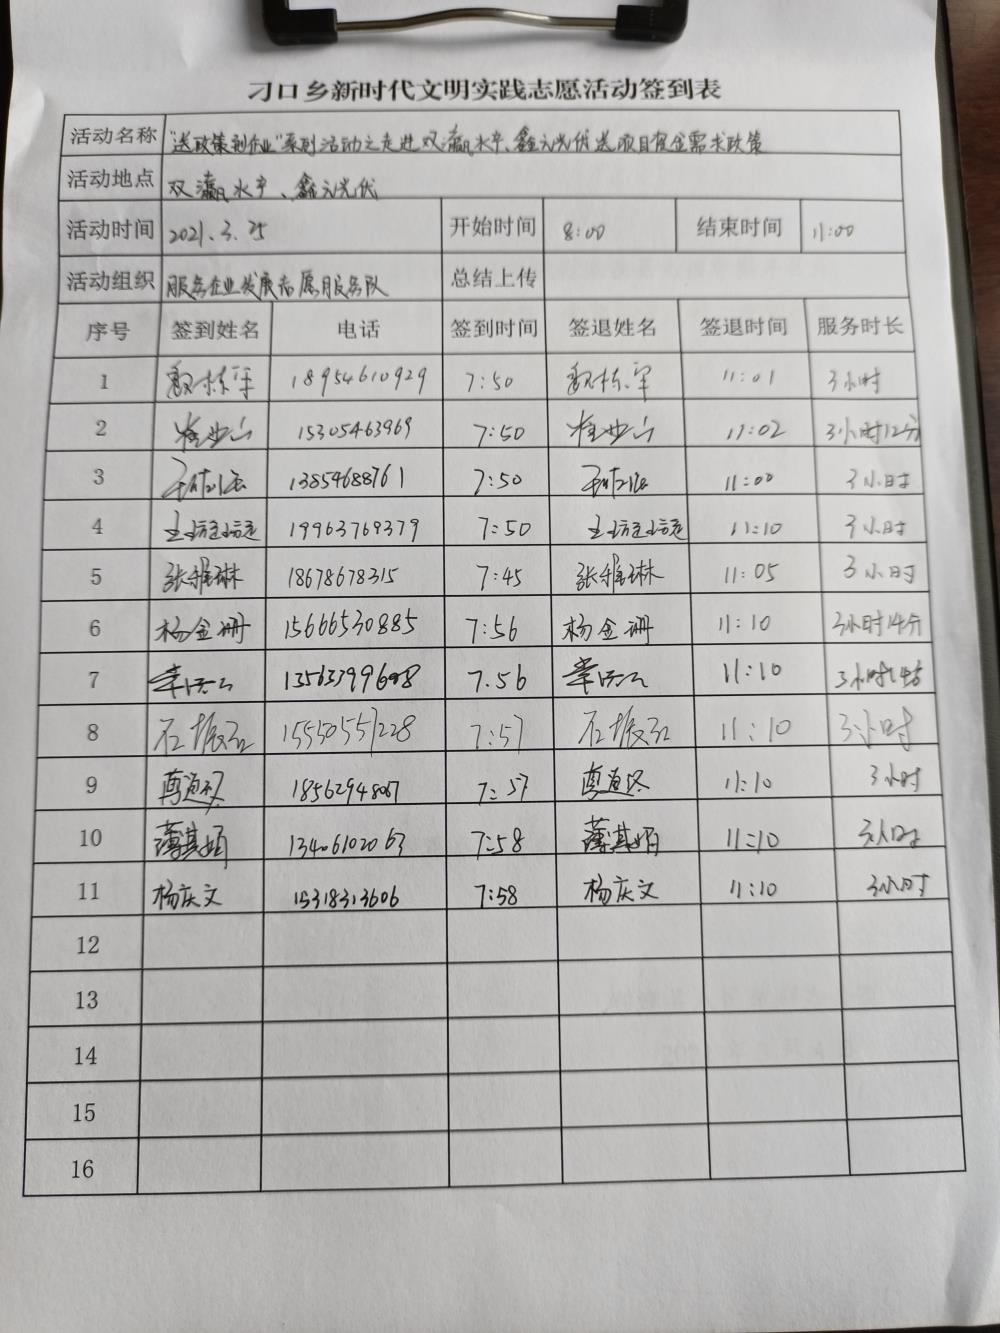 刁口乡新时代文明实践志愿活动签到表
活动名称 "送政策到企业"系列活动之走进双瀛水产、鑫元光伏送项目资金需求政策
活动地点 双瀛水产、鑫元光伏
活动时间 2021.3.25 开始时间 8:00 结束时间 11:00
活动组织 服务企业发展志愿服务队 总结上传
序号 签到姓名 电话 签到时间 签退姓名 签退时间 服务时长
1 18954610929 7:50 11:01 3小时
2 15305463969 7:50 11:02 3小时12分
3 13854688761 7:50 11:00 3小时
4 19963769379 7:50 11:10 3小时
5 张雅琳 18678678315 7:45 张雅琳 11:05 3小时
6 杨金珊 15666530885 7:56 杨金珊 11:10 3小时14分
7 7:56 11:10 3小时14分
8 石振弘 15550551228 7:57 石振弘 11:10 3小时
9 18562948067 7:57 11:10 3小时
10 薄其娟 13406102063 7:58 薄其娟 11:10 3小时
11 杨庆文 15318313606 7:58 杨庆文 11:10 3小时
12
13
14
15
16